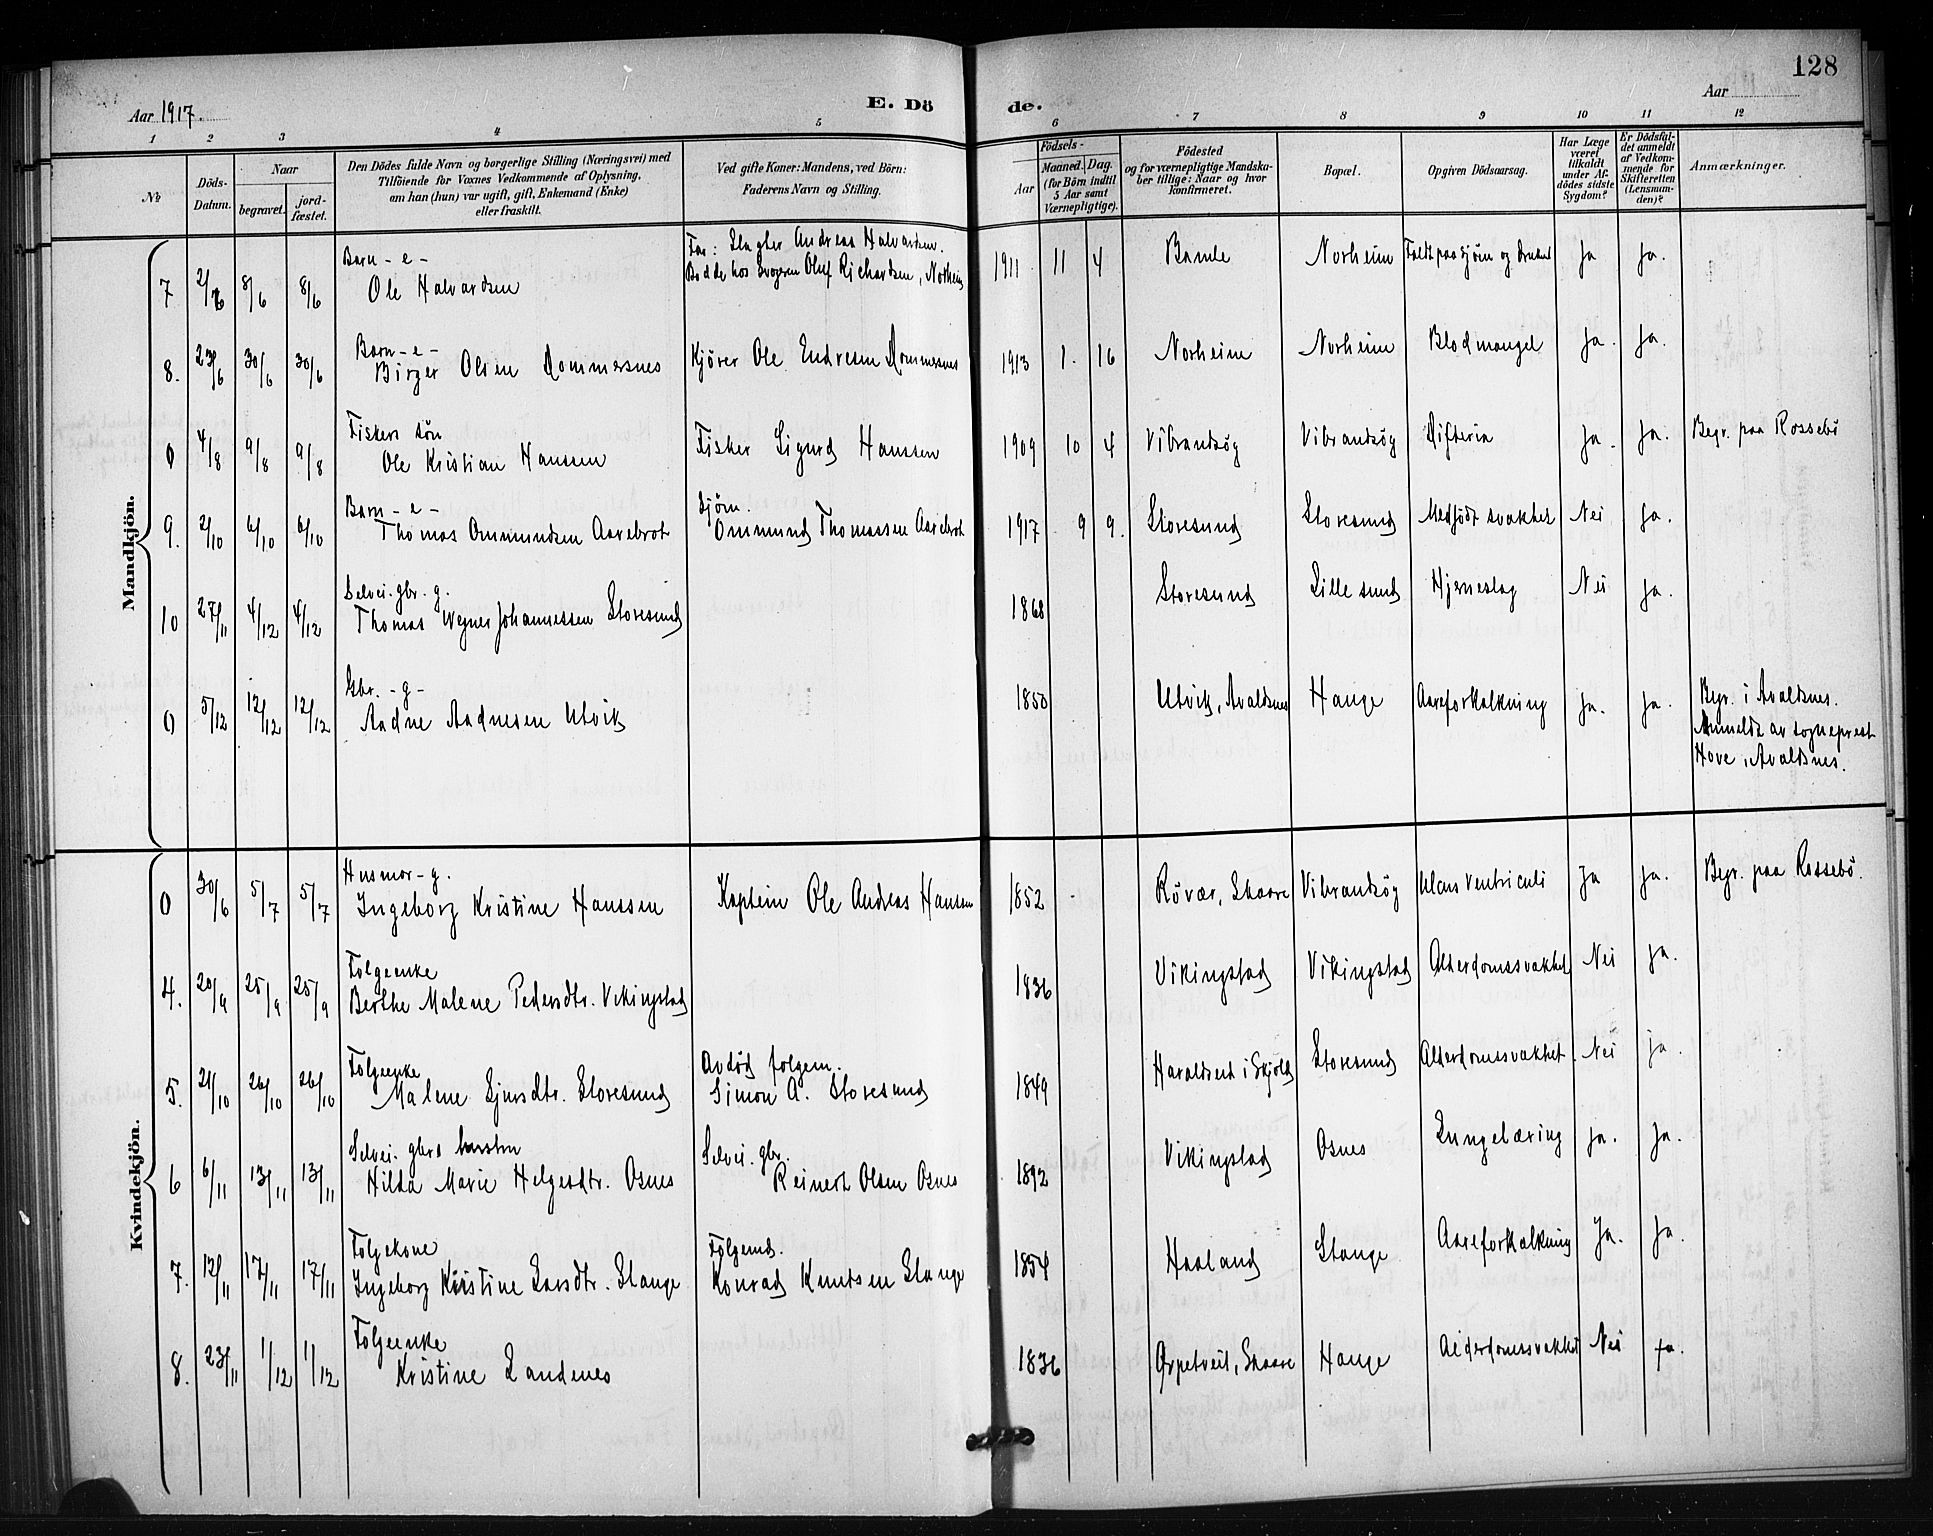 128
Aar 1917.
E. Dö
de.
Aar
1 2 3 4 5 6 7 8 9 10 11 12
№
Döds-Datum.
Naar
begravet.
jord-fæstet.
Den Dödes fulde Navn og borgerlige Stilling (Næringsvei) med
Tilföiende for Voxnes Vedkommende af Oplysning,
om han (hun) var ugift, gift, Enkemand (Enke)
eller fraskilt.
Ved gifte Koner: Mandens, ved Börn:
Faderens Navn og Stilling.
Födsels-
Aar
Maaned. Dag.
(for Börn indtil
5 Aar samt
Værnepligtige).
Födested
og for værnepligtige Mandska-
ber tillige: Naar og hvor
konfirmeret.
Bopæl.
Opgiven Dödsaarsag.
Har Læge
været
tilkaldt
under Af-
dödes sidste
Sygdom?
Er Dödsfal-
det anmeldt
af Vedkom-
mende for
Skifteretten
(Lensman-
den)?
Anmærkninger.
Mandkjön.
Barn - e - Far: Slagter Andreas Halvardsen.
7 2/6 8/6 8/6 Ole Halvardsen Bodde hos Svogeren Oluf Richardsen, Norheim 1911 11 4 Bamle Norheim Faldt paa sjøen og druknet Ja Ja.
Barn - e -
8. 23/6 30/6 30/6 Birger Olsen Dommersnes Kjører Ole Endresen Dommersnes 1913 1. 16 Norheim Norheim Blodmangel Ja. Ja.
Fiskers søn
0 4/8 9/8 9/8 Ole Kristian Hanssen Fisker Sigurd Hanssen 1909 10 4 Vibrandsøg Vibrandsøg Difteria Ja. Ja. Begr. paa Rossebö
Barn - e - Sjøm.
9. 2/10 6/10 6/10 Thomas Ommundsen Aarebrot Ommund Thomassen Aarebrot 1917 9 9. Storesund Storesund Medfödt svakhet Nei Ja.
Selvei. gbr. g.
10 27/11 4/12 4/12 Thomas Wegner Johannessen Storesund 1868 Storesund Lillesund Hjerneslag Nei Ja.
Gbr. - g -
0 5/12 12/12 12/12 Aadne Aadnesen Utvik 1850 Utvik, Avaldsnes Hauge Aareforkalkning Ja. Ja. Begr. i Avaldsnes.
Anmeldt av sogneprest
Hove, Avaldsnes.
Kvindekjön.
Husmor - g.
0 30/6 5/7 5/7 Ingeborg Kristine Hanssen Kaptein Ole Andreas Hanssen 1852 Rövær, Skaare Vibrandsøg Ulcus Ventriculi Ja Ja. Begr. paa Rossebö.
Folgeenke
4. 20/9 25/9 25/9 Berthe Malene Pedersdtr. Vikingstad 1836 Vikingstad Vikingstad Alderdomssvakhet Nei Ja.
Folgeenke Avdöd folgem.
5. 21/10 26/10 26/10 Malene Sjursdtr. Storesund Simon A. Storesund 1849 Haraldseid i Skjold Storesund Alderdomssvakhet Nei Ja.
Selvei. gbrs hustru Selvei. gbr.
6 6/11 13/11 13/11 Hilda Marie Helgesdtr. Osnes Reinert Olsen Osnes 1892 Vikingstad Osnes Lungetæring Ja. Ja.
Folgekone Folgemd.
7. 12/11 17/11 17/11 Ingeborg Kristine Larsdtr. Stange Konrad Knutsen Stange 1854 Haaland Stange Aareforkalkning Ja. Ja.
Folgeenke
8. 23/11 1/12 1/12 Kristine Landenes 1836 Skaare Hauge Alderdomssvakhet Nei Ja.